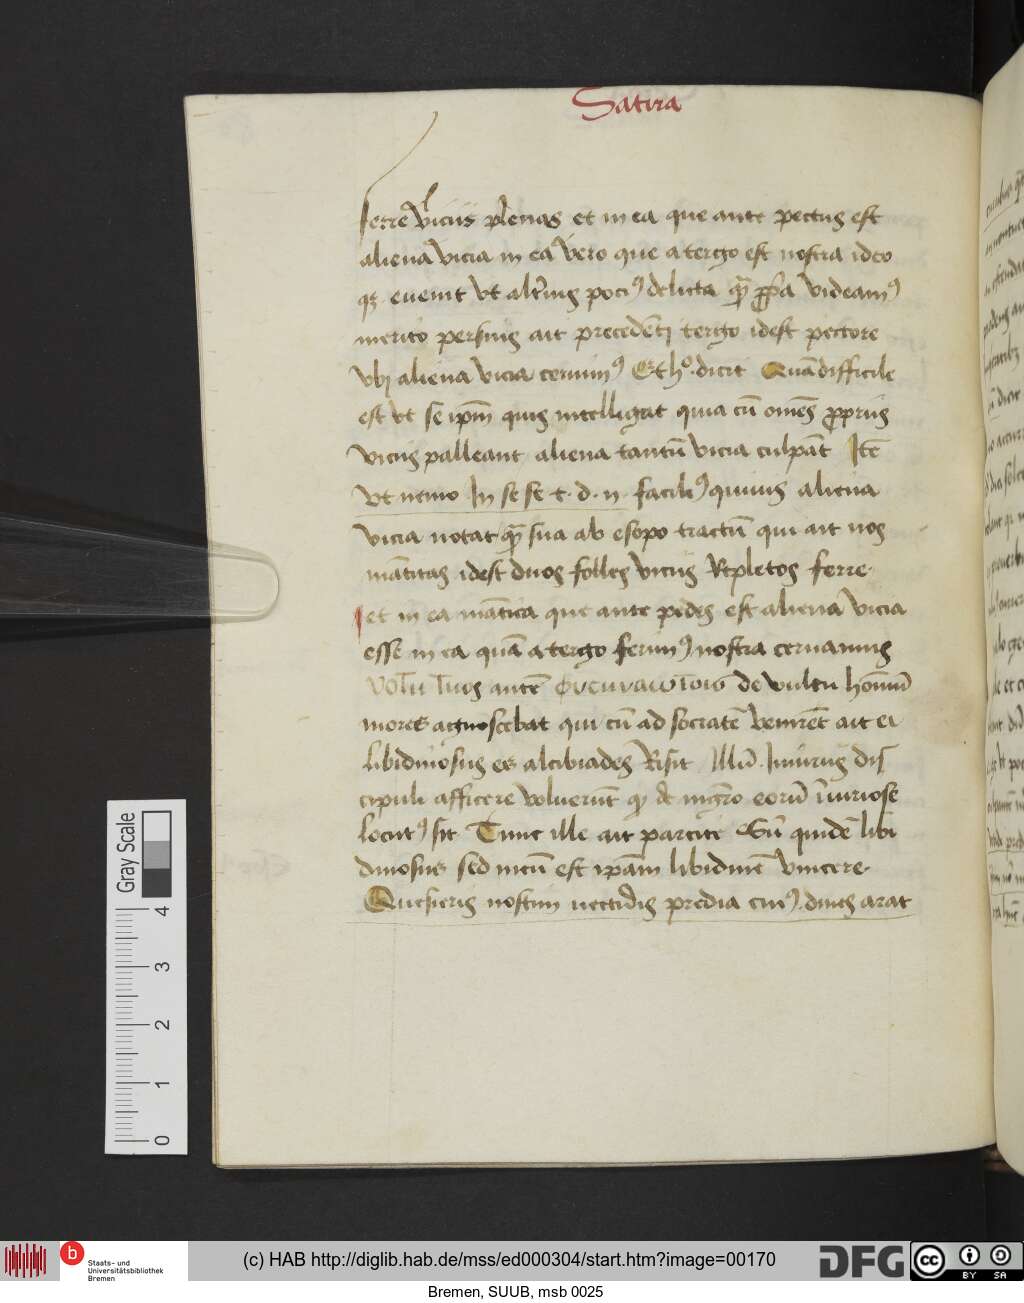 Satira
ferre viciis plenas et in ea que ante pectus est
aliena vicia in ea vero que a tergo est nostra ideo
qꝫ euenit vt alteriꝰ pociꝰ delicta qua̅ ꝓp̅a videamꝰ
merito persius ait precede̅ti tergo idest pectore
vbi aliena vicia cernimꝰ Et h°. dicit Qua̅ difficile
est vt se ip̅m quis intelligat quia cu̅ om̅es ꝓpriis
viciis palleant aliena tantu̅ vicia culpa̅t Ite̅
vt nemo In se se t. d. n. faciliꝰ quiuis aliena
vicia notat qua̅ sua ab esopo tractu̅ qui ait nos
ma̅ticas idest duos folles viciis repletos ferre.
et in ea ma̅tica que ante pedes est aliena vicia
esse in ea qua̅ a tergo ferimꝰ nostra
de vultu homi̅u̅
mores agnoscebat qui cu̅ ad socrate̅ venire̅t ait ei
libidinosus es alcibiades Risit Illu̅. Iniuriis dis
cipuli afficere voluerūt
locutꝰ sit Tunc ille ait parcite Su̅ quide̅ libi
dinosus sed meu̅ est ip̅am libidine̅ vincere.
Quesieris nostin vectidis predia cuiꝰ. diues arat
Gray Scale
4
3
2
1
0
Staats- und
Universitätsbibliothek
Bremen
(c) HAB http://diglib.hab.de/mss/ed000304/start.htm?image=00170
DFG
cc BY SA
Bremen, SUUB, msb 0025